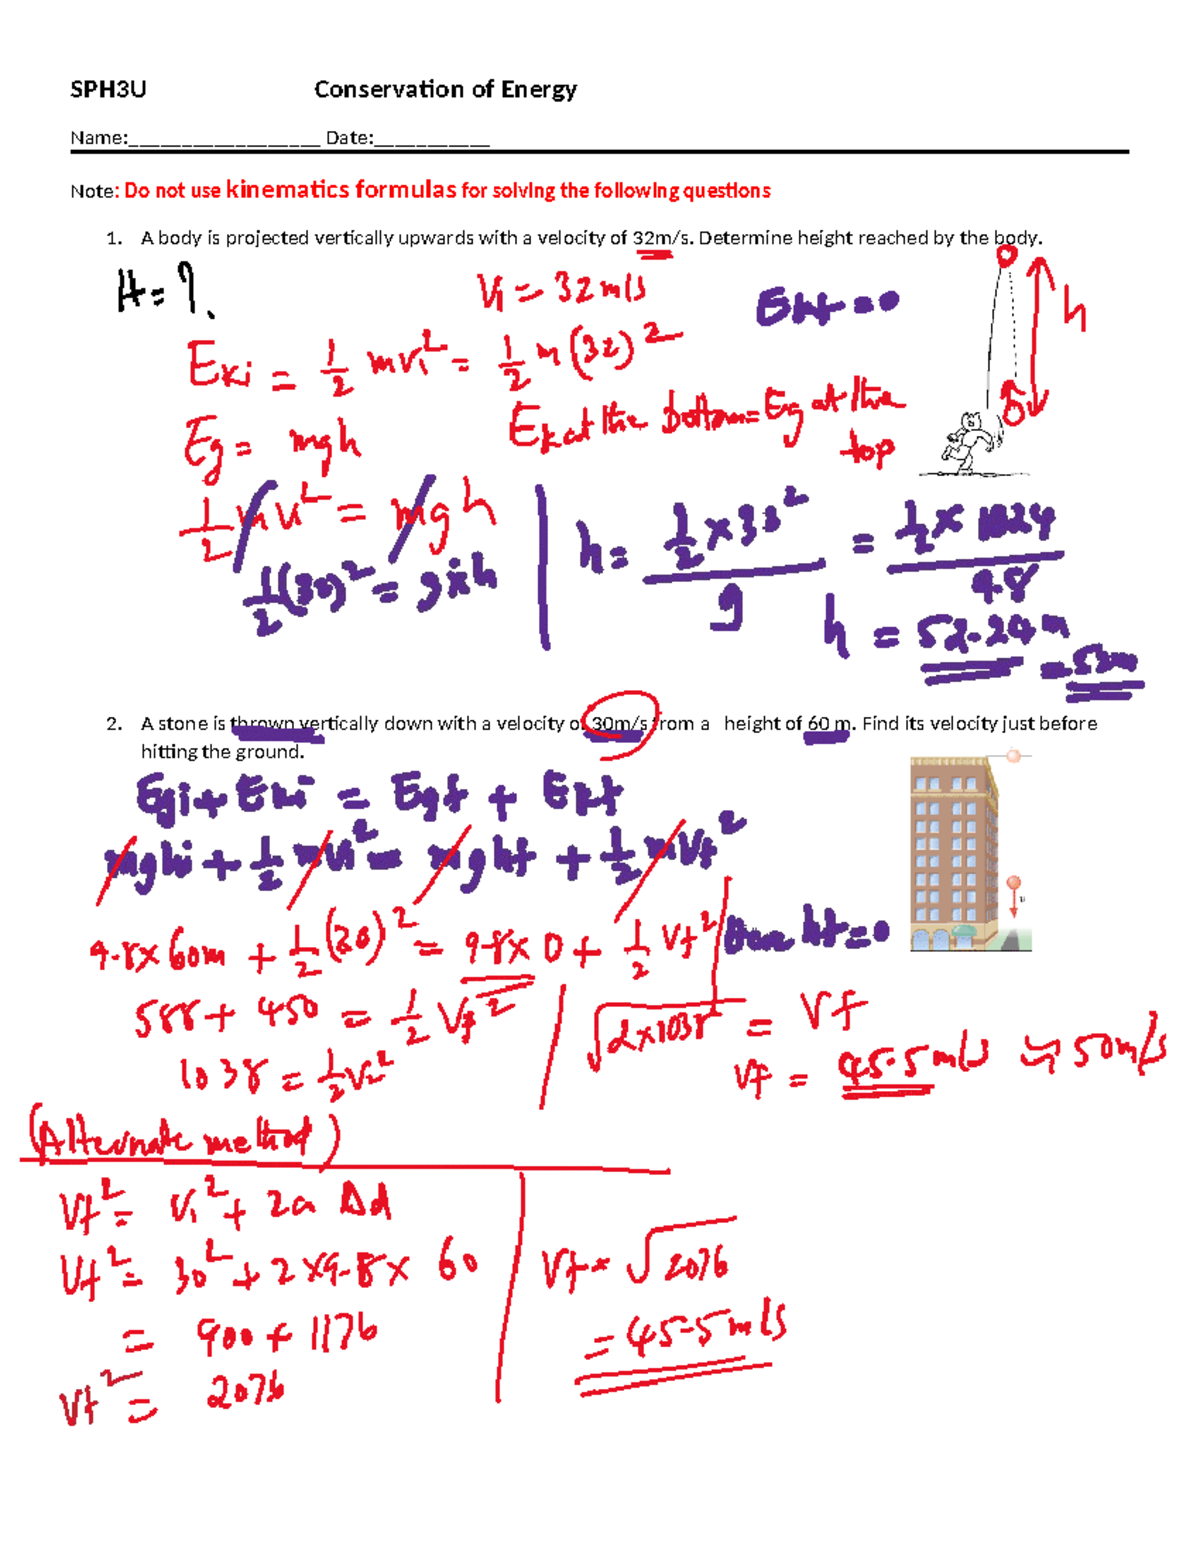 SPH3U Conservation of Energy
Name:___________________ Date:___________
Note: Do not use kinematics formulas for solving the following questions
1. A body is projected vertically upwards with a velocity of 32m/s. Determine height reached by the body.
H = ?
V₁ = 32 m/s
Ekf = 0
h
Eki = 1/2 mv₁² = 1/2 m (32)²
Ek at the bottom = Eg at the top
Eg = mgh
1/2 mv² = mgh
1/2 (32)² = g × h
h = 1/2 × 32² / g = 1/2 × 1024 / 9.8
h = 52.24 m = 52m
2. A stone is thrown vertically down with a velocity of 30m/s from a height of 60 m. Find its velocity just before
hitting the ground.
Egi + Eki = Egf + Ekf
mghi + 1/2 mvi² = mghf + 1/2 mVf²
9.8 × 60m + 1/2 (30)² = 9.8 × 0 + 1/2 Vf²
hf = 0
588 + 450 = 1/2 Vf²
√2×1038 = Vf
1038 = 1/2 Vf²
Vf = 45.5 m/s ≈ 50m/s
(Alternate method)
Vf² = V₁² + 2a Δd
Vf² = 30² + 2 × 9.8 × 60
= 900 + 1176
Vf² = 2076
Vf = √2076
= 45.5 m/s